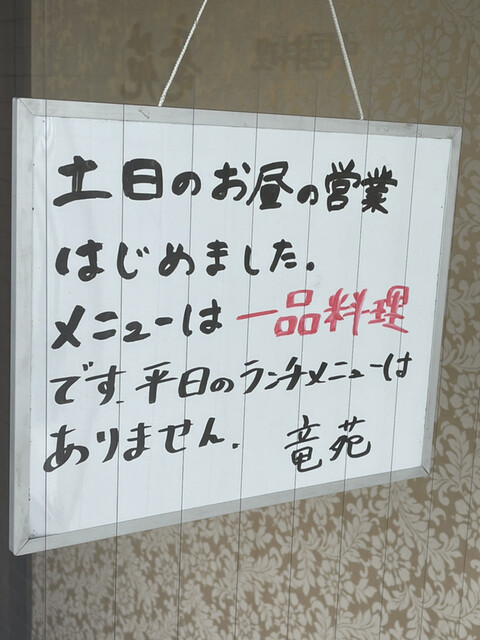 土日のお昼の営業
はじめました.
メニューは一品料理
です.平日のランチメニューは
ありません. 竜苑